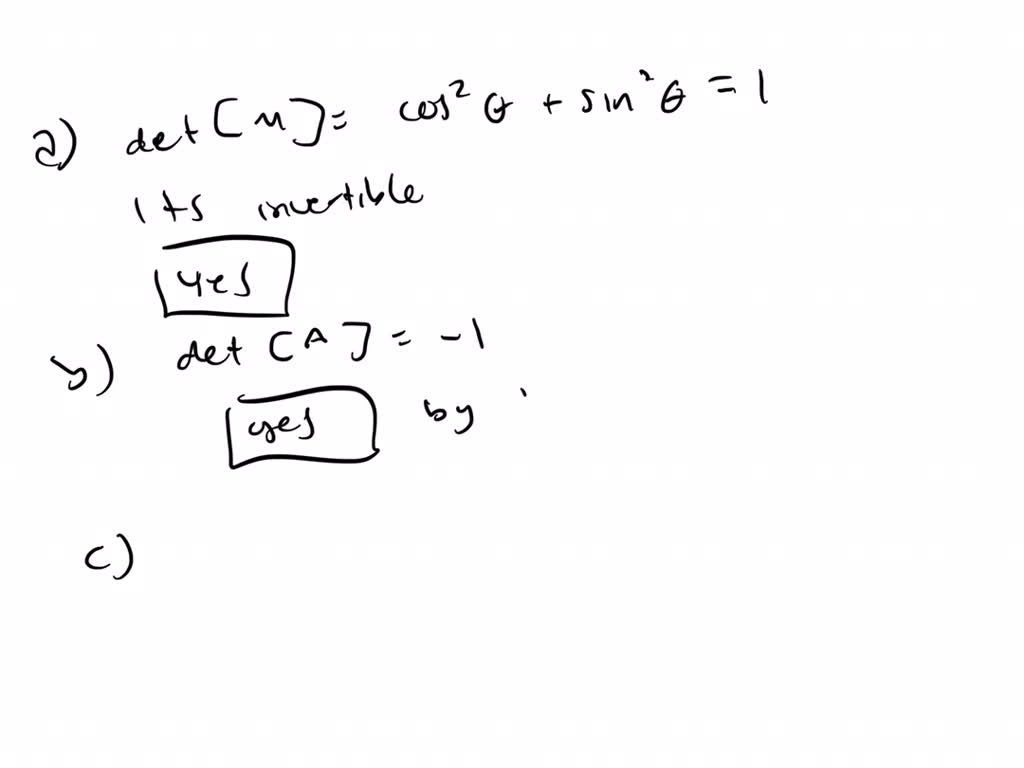 a) det [M] = cos² θ + sin² θ = 1
Its invertible
yes
b) det [A] = -1
yes by
c)